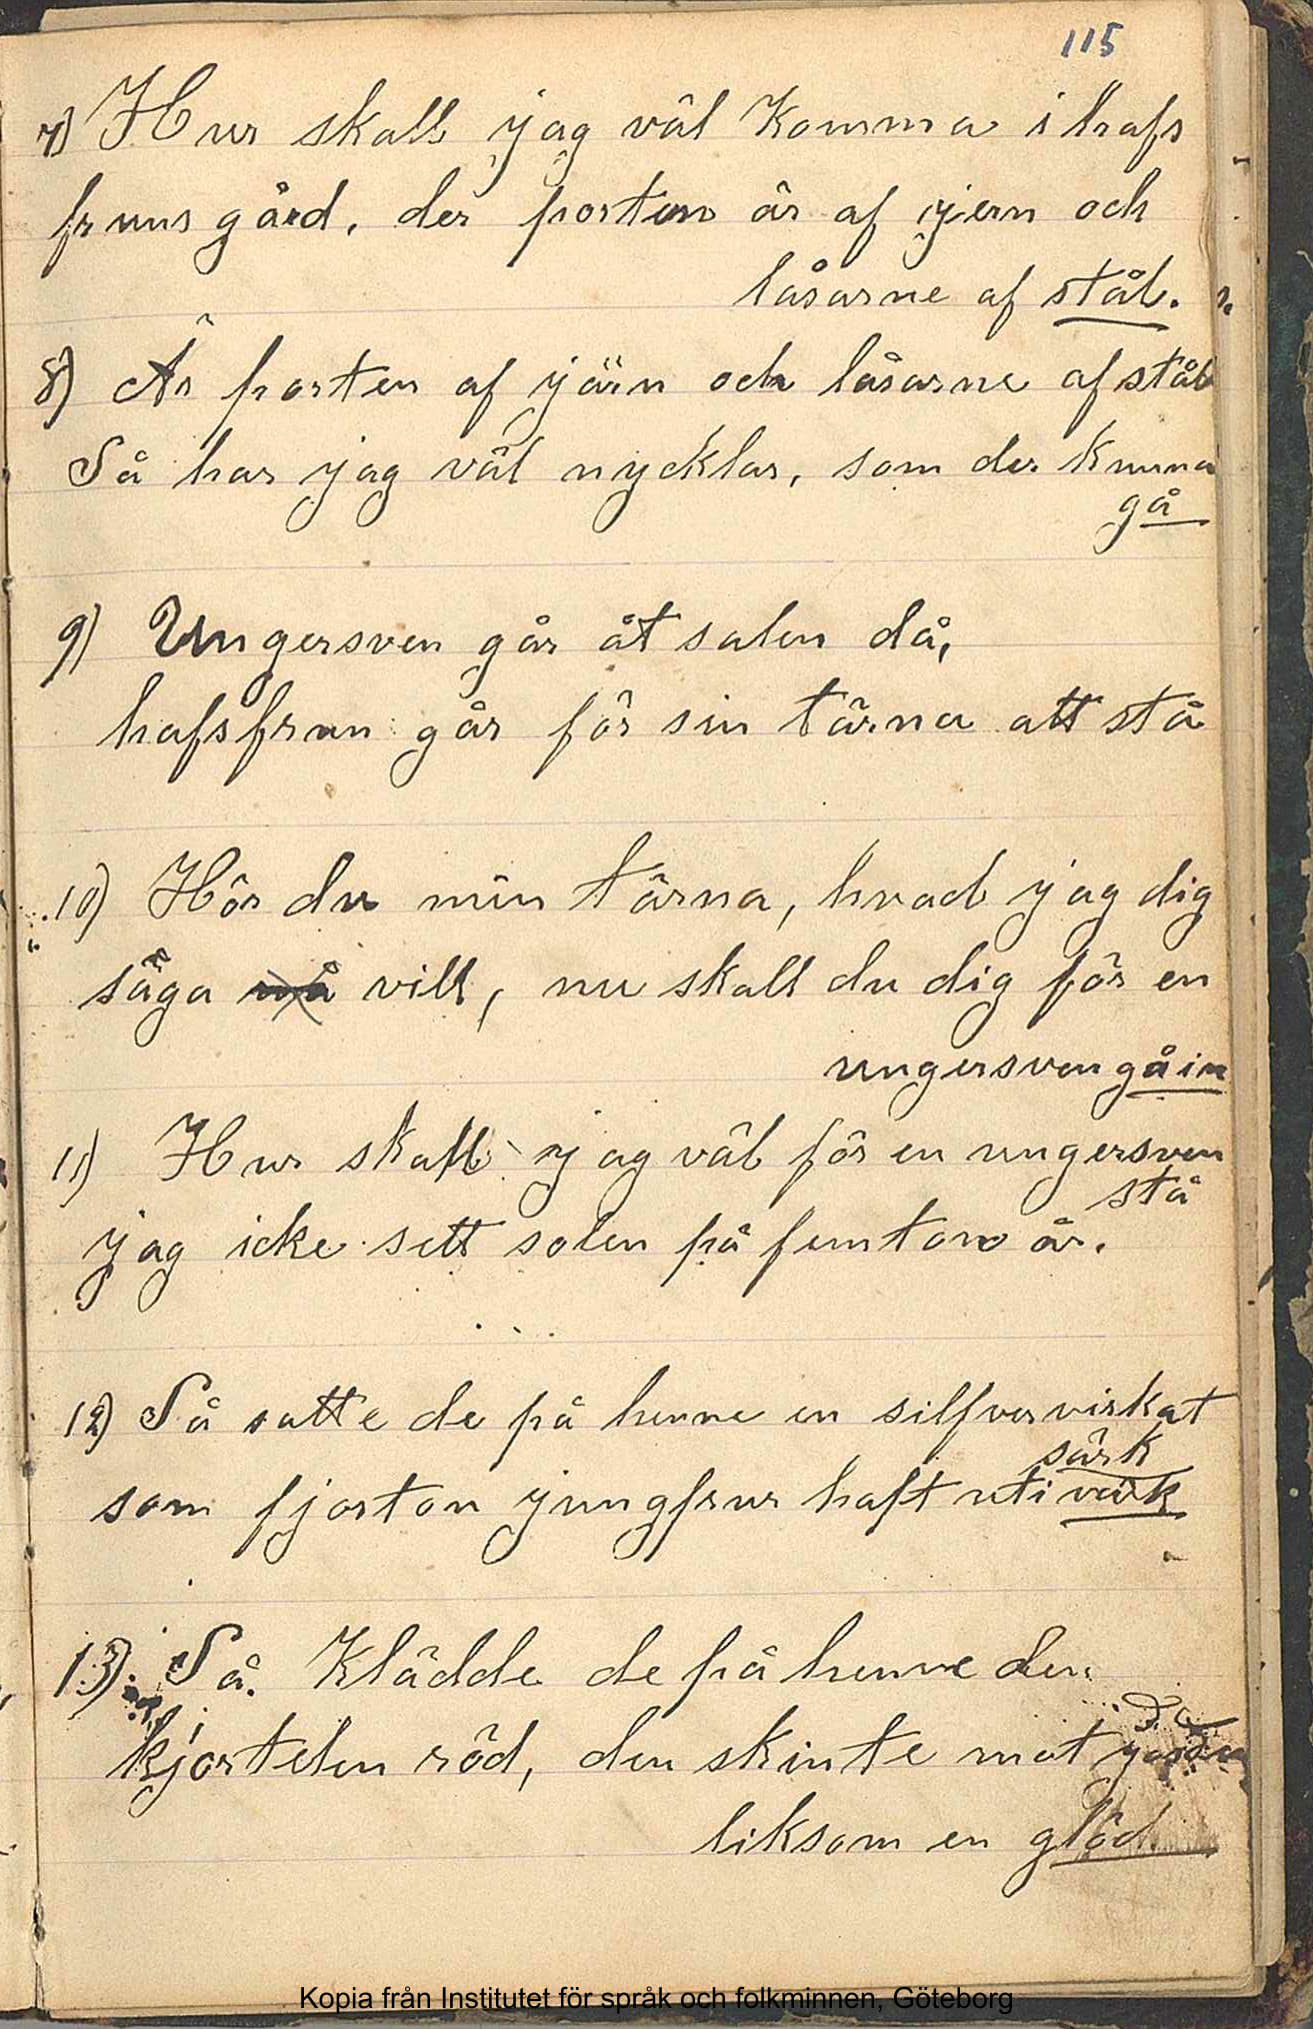 115
7) Hur skall jag väl Komma i hafs
fruns gård, der porten är af jern och
låsarne af stål.
8) Är porten af järn och låsarne af stål
Så har jag väl nycklar, som der kunna
gå
9) Ungersven går åt salen då,
hafsfrun går för sin tärna att stå
10) Hör du min tärna, hvad jag dig
säga vill, nu skall du dig för en
ungersven gå in
11) Hur skall jag väl för en ungersven
stå
jag icke sett solen på femton år.
12) Så satte de på henne en silfvervirkat
särk
som fjorton jungfrur haft uti värk
13) Så Klädde de på henne den
kjortelen röd, den skinte mot
liksom en glöd.
Kopia från Institutet för språk och folkminnen, Göteborg